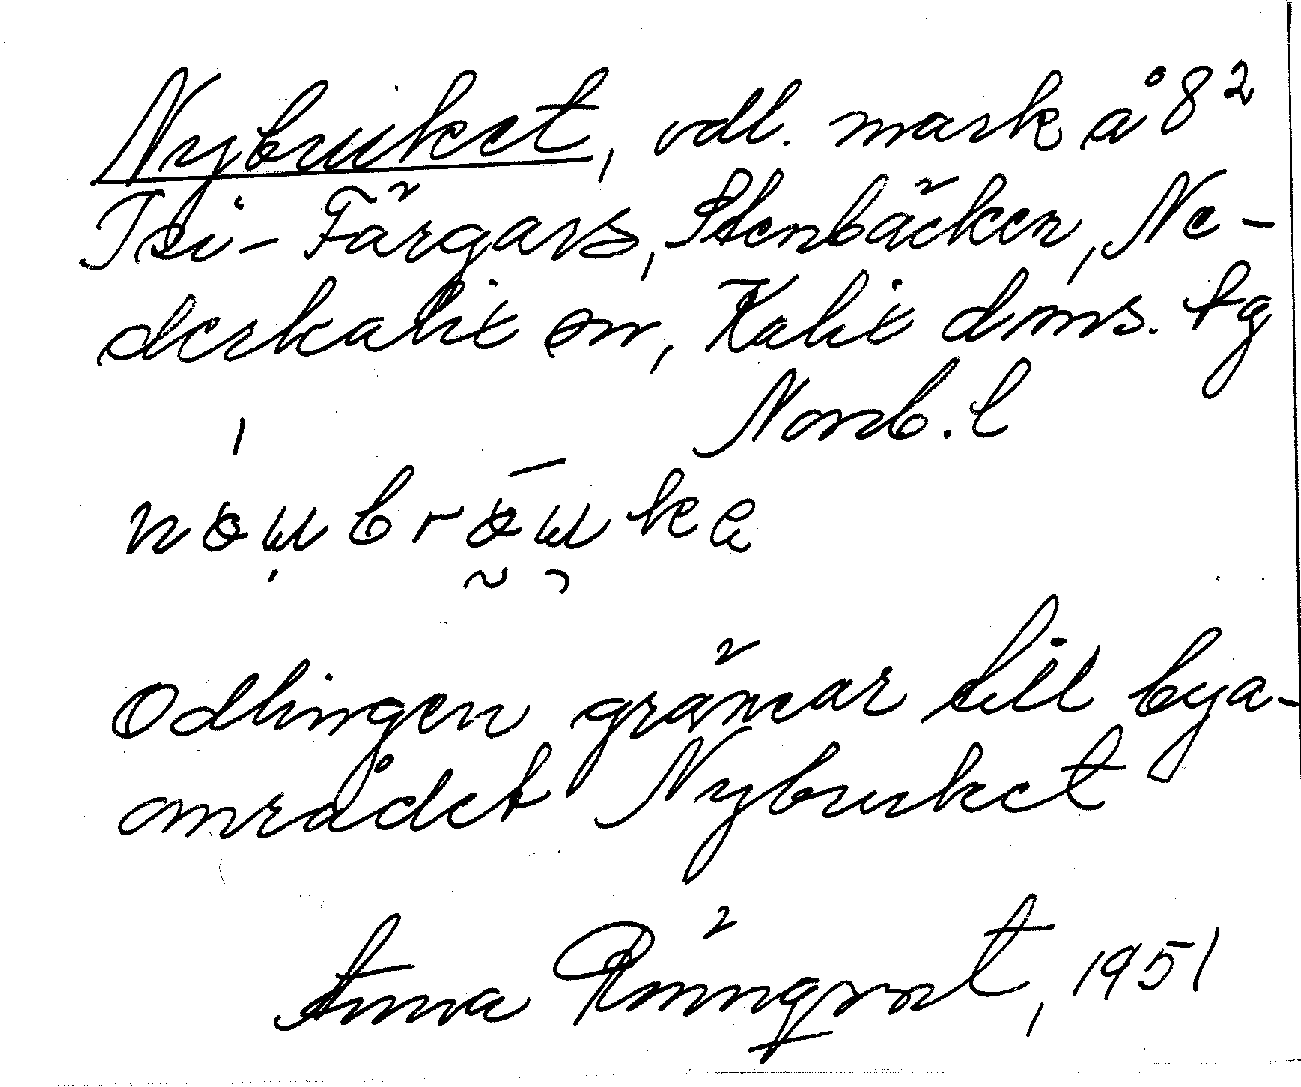 Nybruket, odl. mark å 8²
Isi-Färgars, Stenbäcken, Ne-
derkalix sn, Kalix dms. tg
Norrb. l
Odlingen gränsar till bya-
området Nybruket
Anna Rönnqvist, 1951